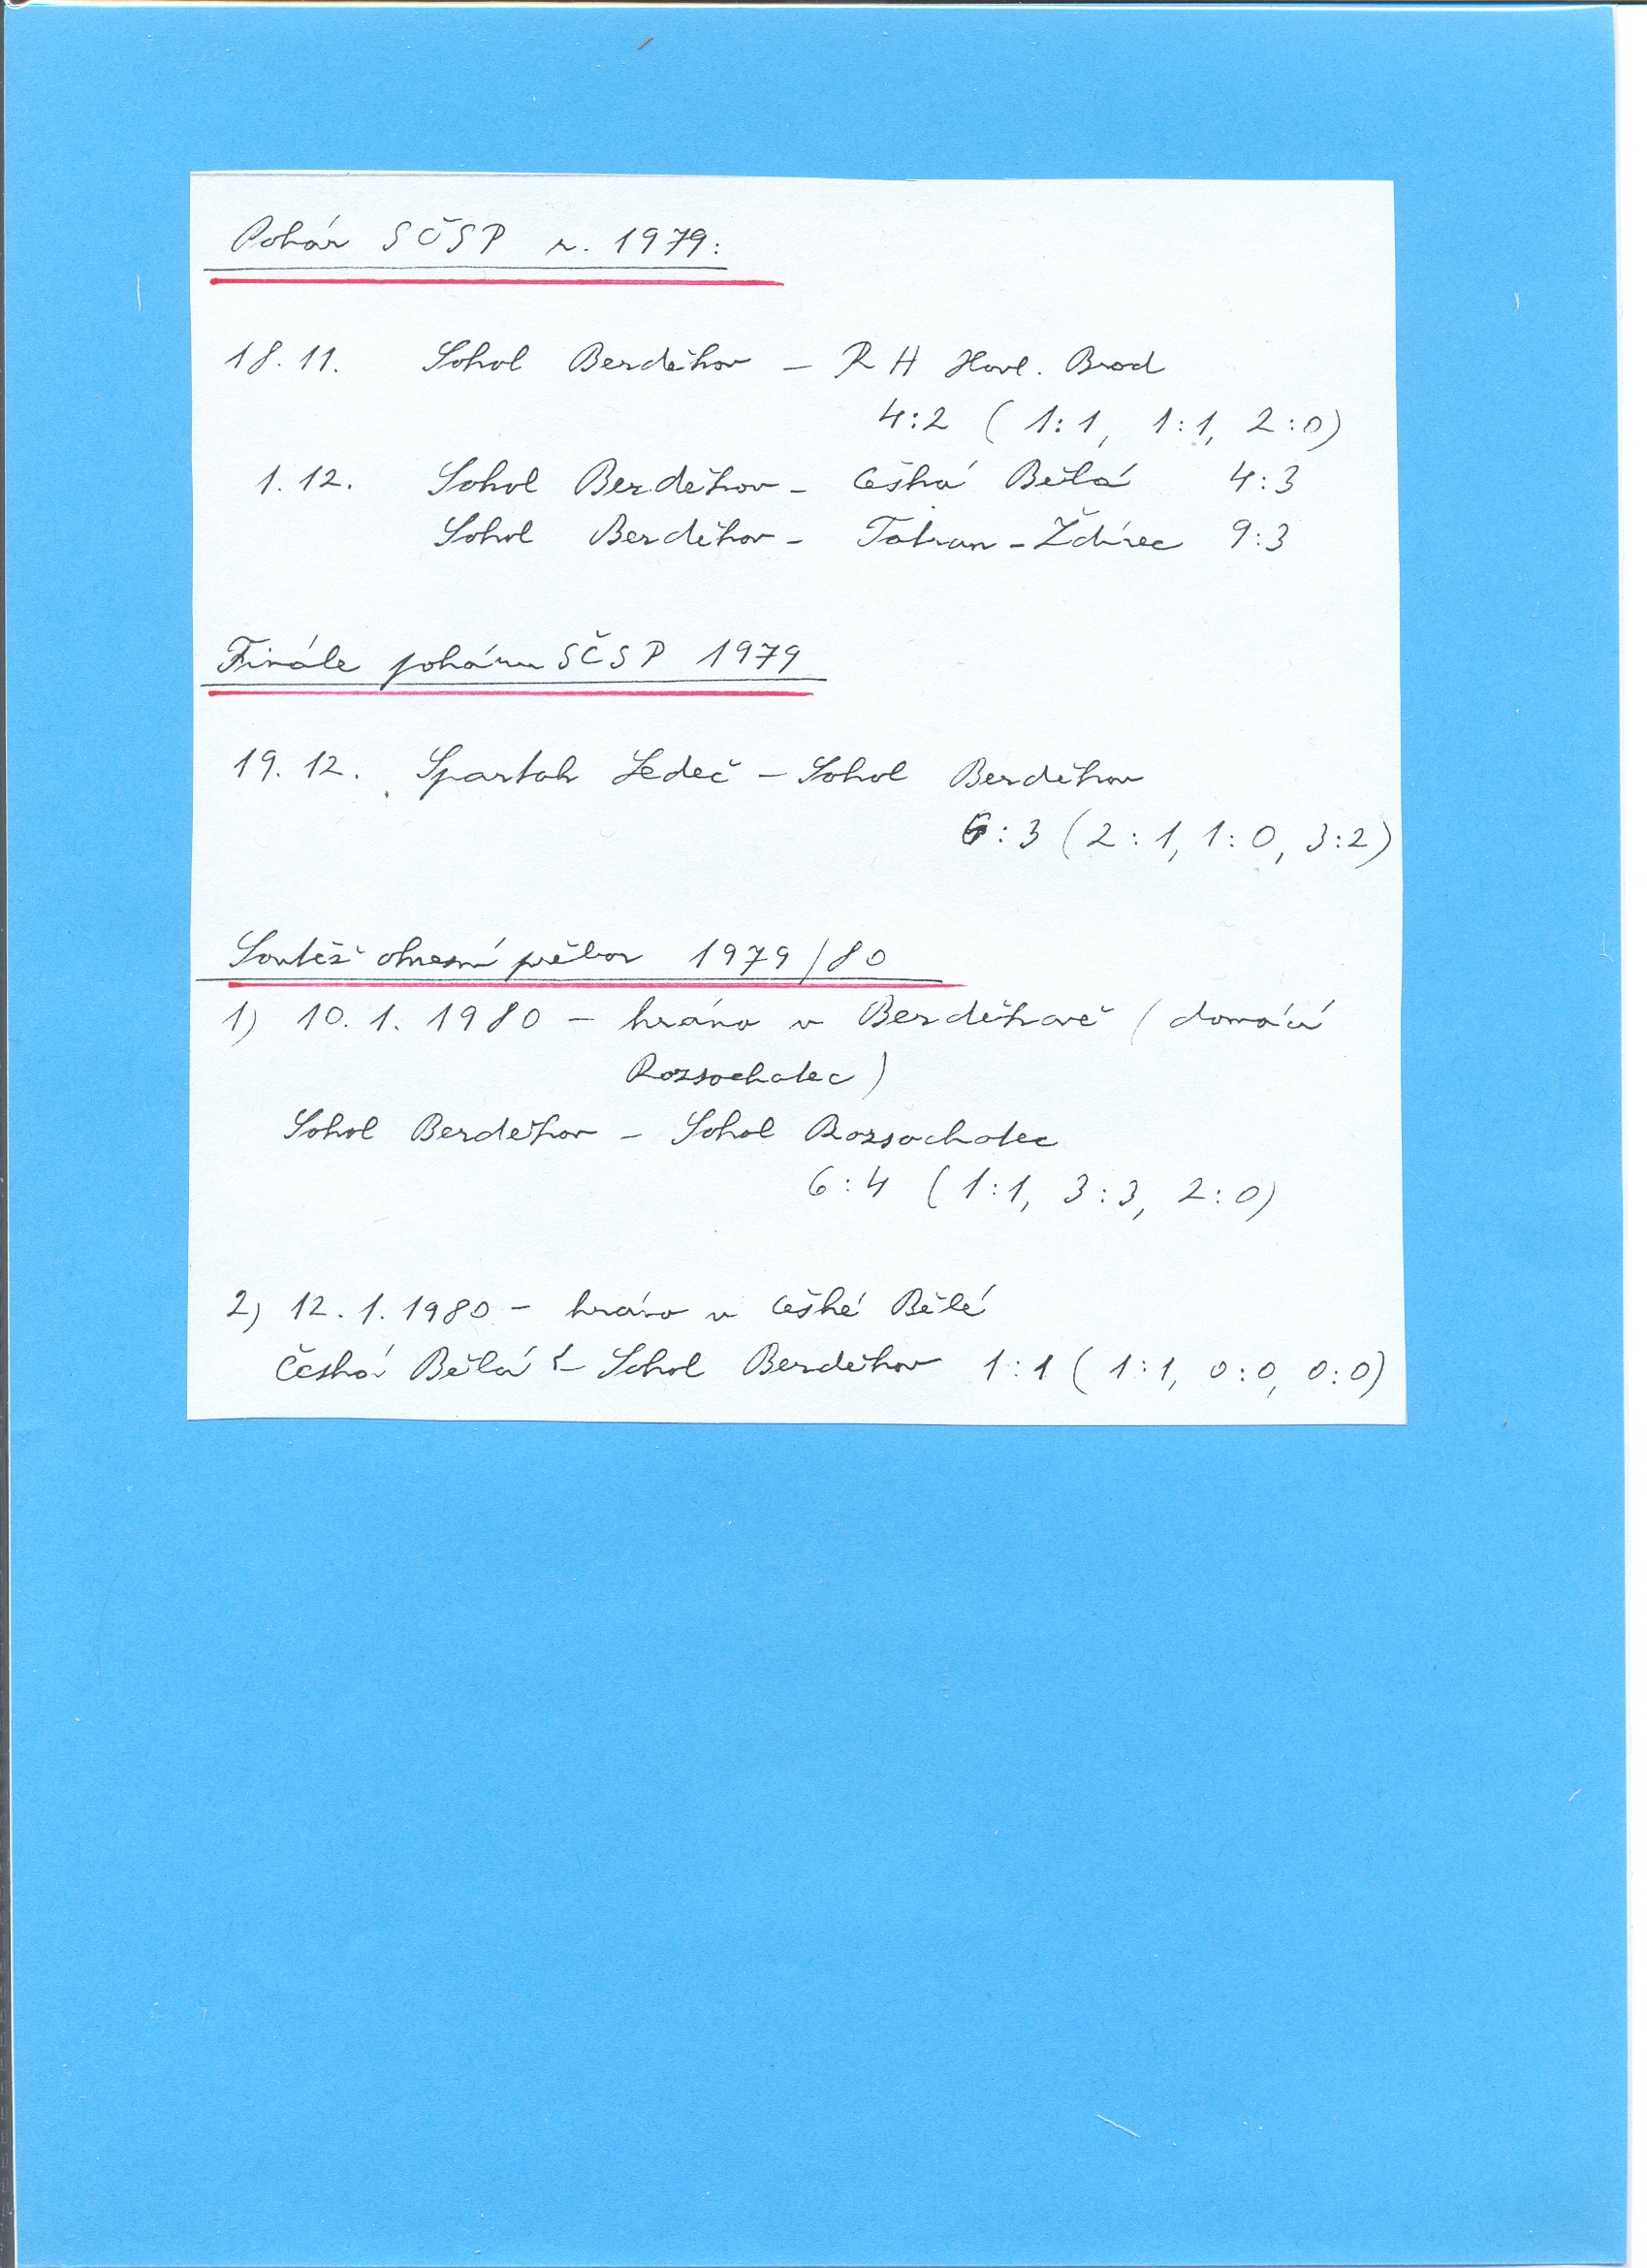 Pohár SČSP r. 1979:
18. 11. Sokol Berděkov – RH Havl. Brod
4:2 (1:1, 1:1, 2:0)
1. 12. Sokol Berděkov – Česká Bělá 4:3
Sokol Berděkov – Tatran – Ždírec 9:3
Finále poháru SČSP 1979
19. 12. Spartak Ledeč – Sokol Berděkov
6:3 (2:1, 1:0, 3:2)
Soutěž okresní přebor 1979/80
1) 10. 1. 1980 – hráno v Berděkově (domácí
Rozsochatec)
Sokol Berděkov – Sokol Rozsochatec
6:4 (1:1, 3:3, 2:0)
2) 12. 1. 1980 – hráno v České Bělé
Česká Bělá – Sokol Berděkov 1:1 (1:1, 0:0, 0:0)